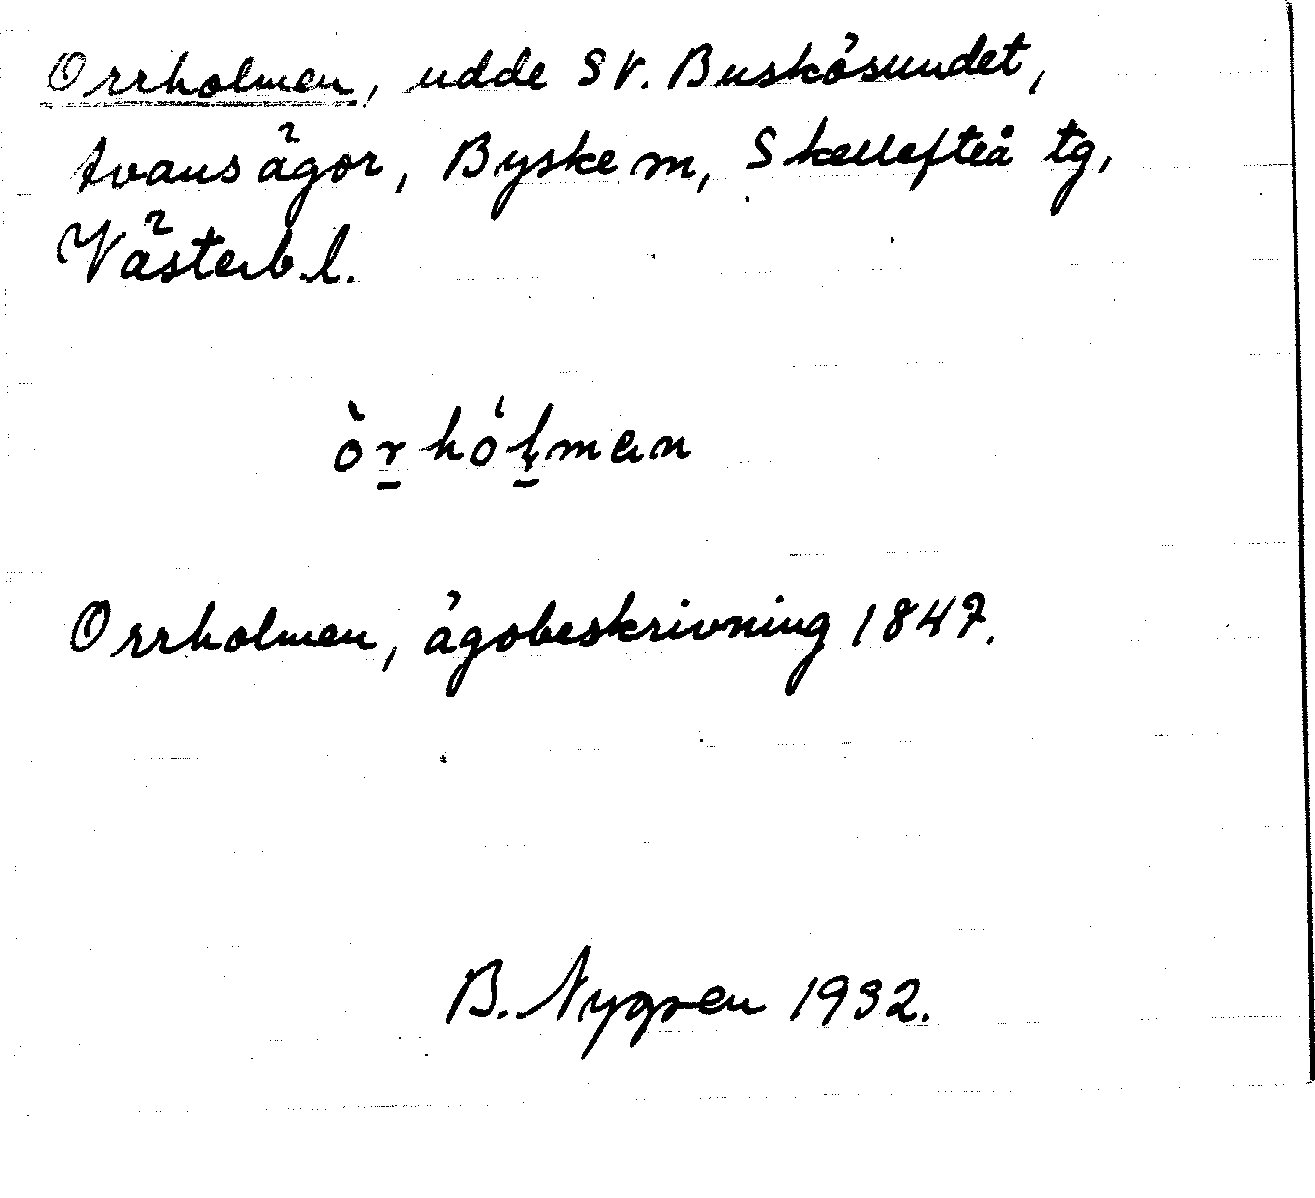 Orrholmen, udde SV. Buskösundet,
tvansägor, Byske sn, Skellefteå tg,
Västerb. l.
òr̠hól̠men
Orrholmen, ägobeskrivning 1847.
B. Nygren 1932.